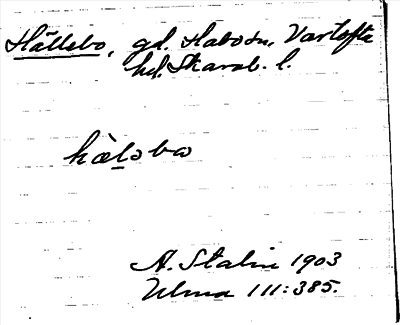 Hällebo, gd. Habo sn, Vartofta
hd. Skarab. l.
hæ̀lə bω
A. Stalin 1903
Ulma 111:385.